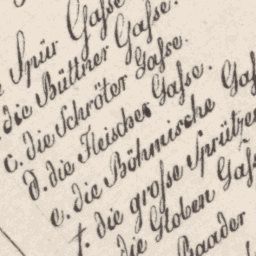 Spür Gasse
die Büttner Gasse.
c. die Schröter Gasse.
d. die Fleischer Gasse.
e. die Böhmische Gas
f. die große Sprützen
die Kloben Gas
Baader